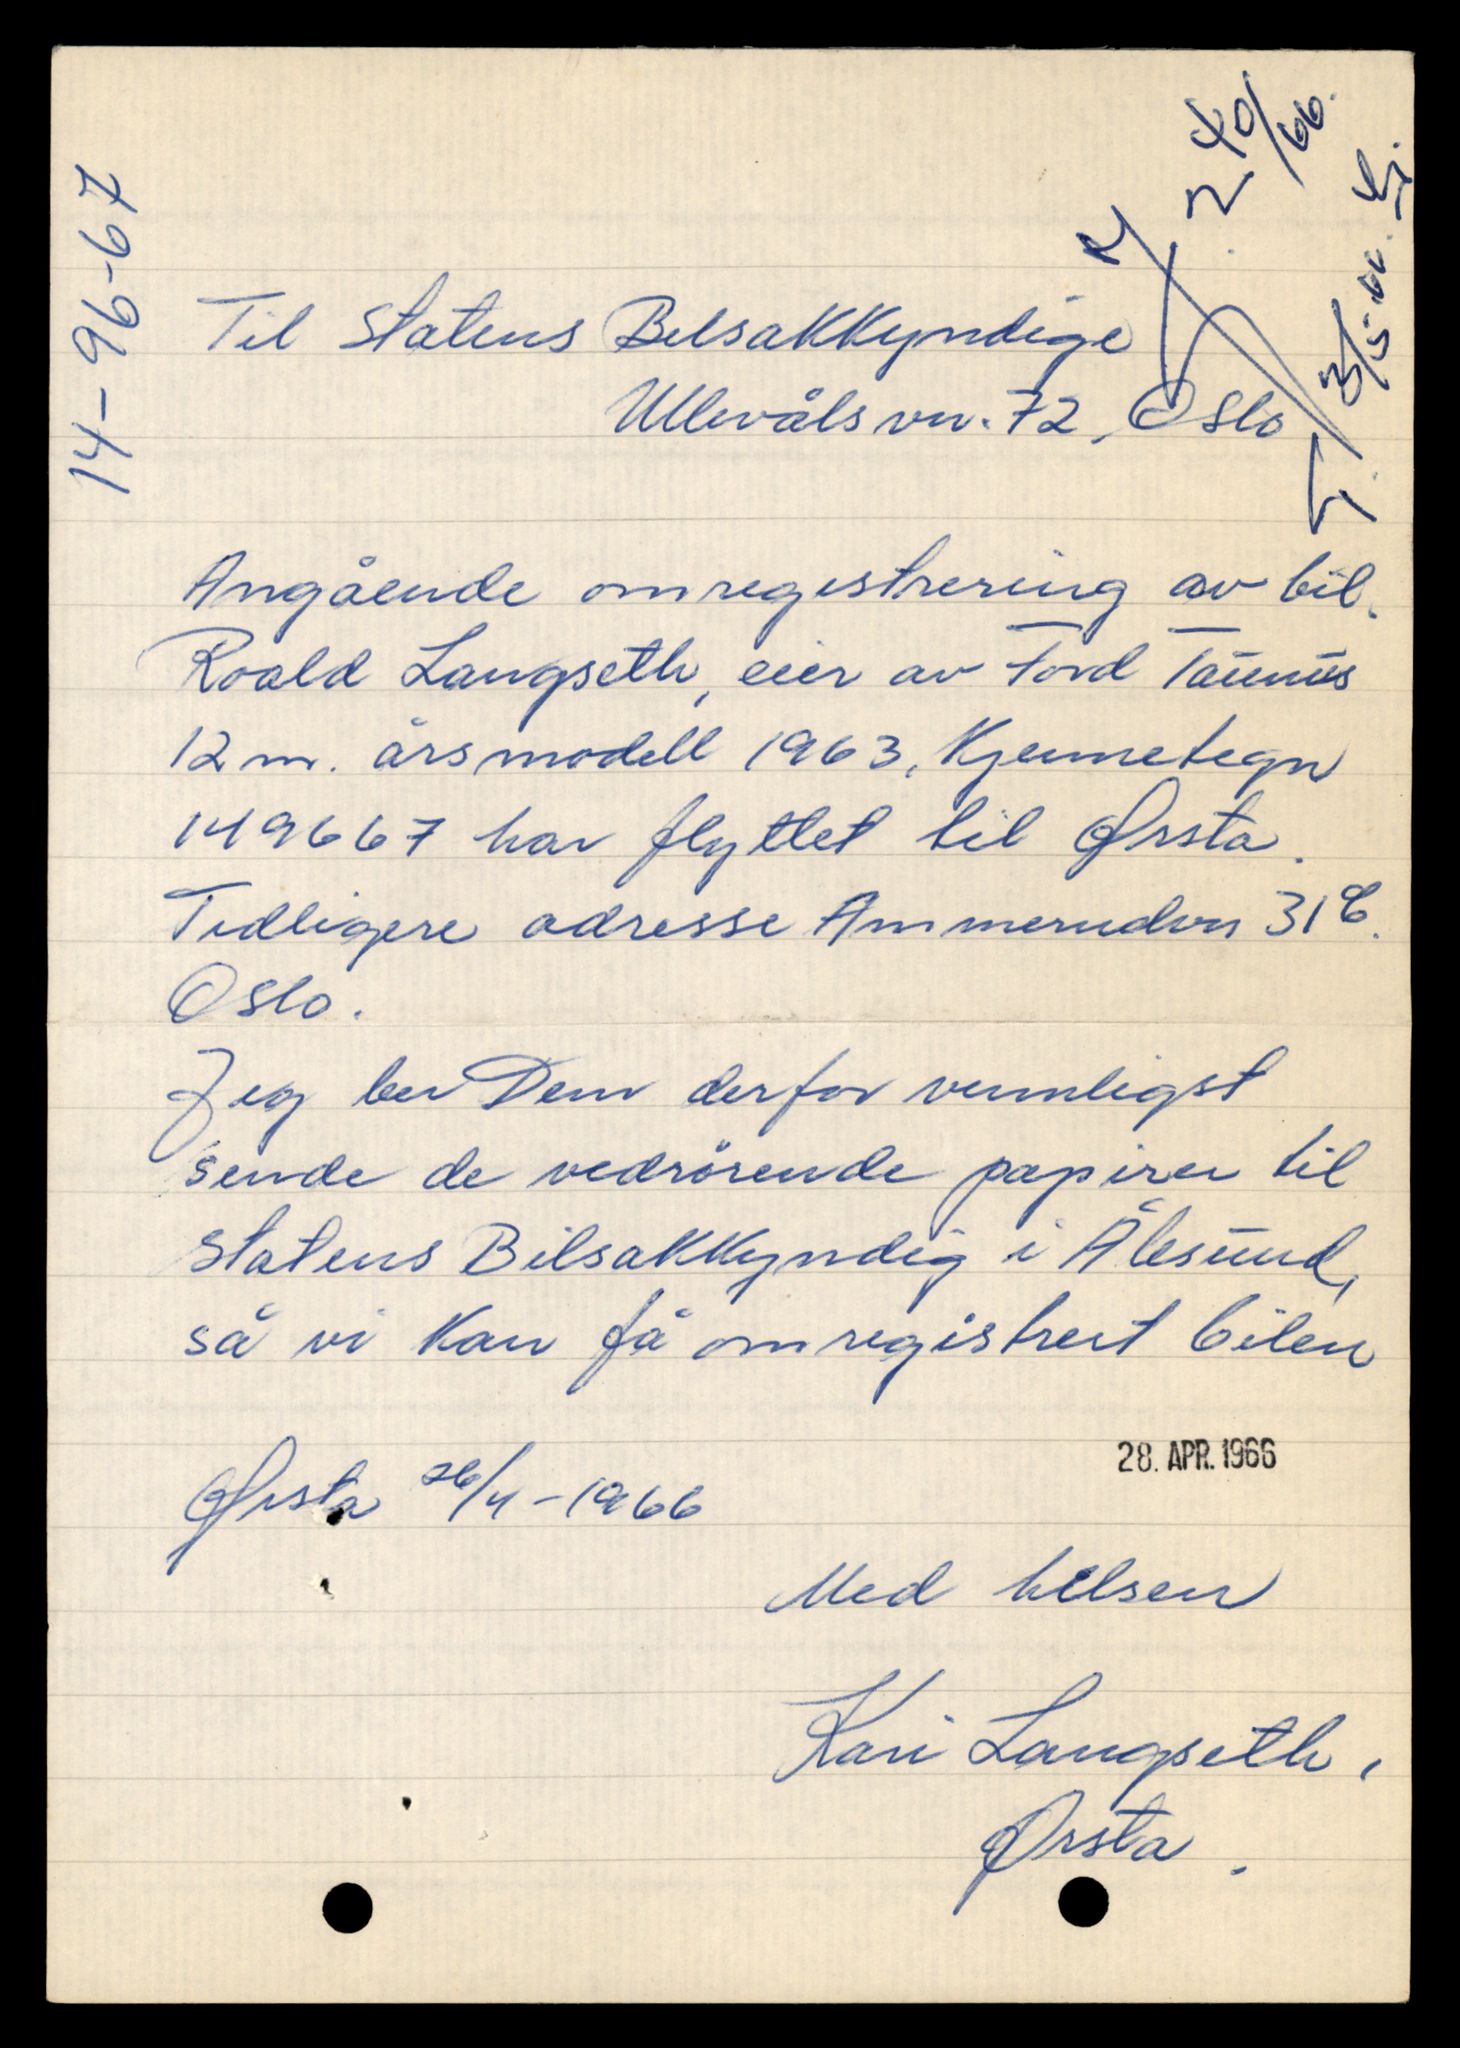 14-96-67
240/66.
3/5-66.
Til Statens Bilsakkyndige
Ullevålsvn. 72, Oslo
Angående omregistrering av bil.
Roald Langseth, eier av Ford Taunus
12 m. årsmodell 1963, Kjennetegn
149667 har flyttet til Ørsta.
Tidligere adresse Ammerudvn 31
Oslo.
Jeg ber Dem derfor vennligst
sende de vedrörende papirer til
Statens Bilsakkyndig i Ålesund,
så vi kan få omregistrert bilen
28. APR. 1966
Ørsta 26/4-1966
Med hilsen
Kari Langseth,
Ørsta.